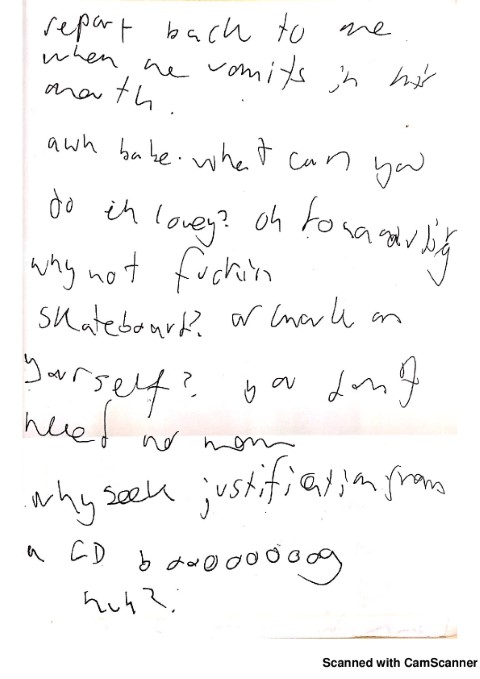 report back to me
when he vomits in his
mouth.
awh babe. what can you
do eh lovey? oh
why not fuckin
skateboard? or work on
yourself? you don't
need no mom
why seek justification from
a CD booooooooog
huh?
Scanned with CamScanner